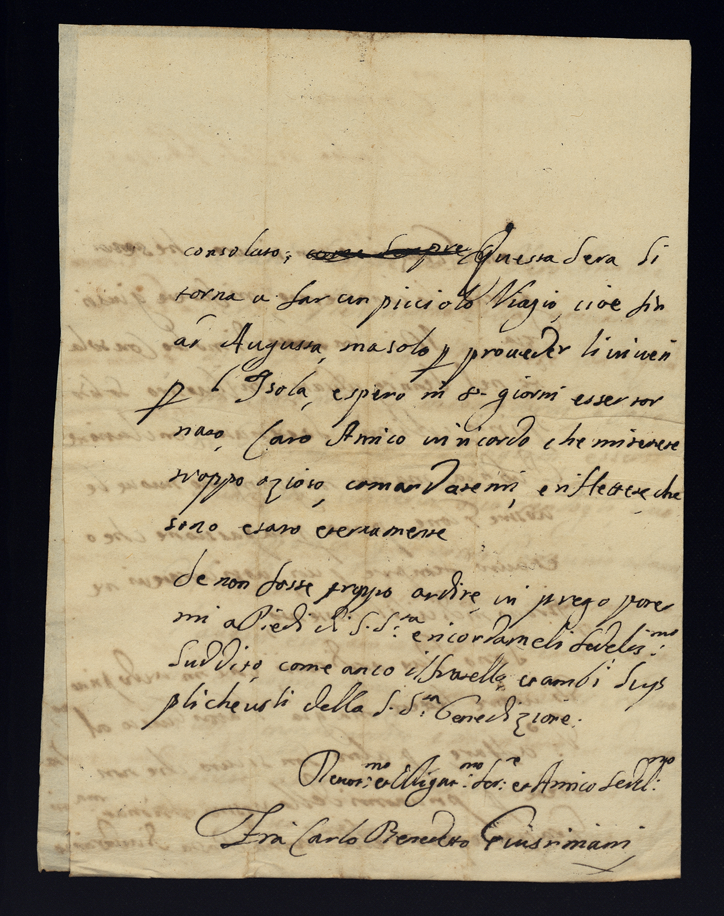 consolato; come sempre Questa sera si
torna a far un picciolo Viagio, cioè sin
ad Augusta, ma solo p proveder li viveri
p l'Isola, e spero in 8 giorni esser tor
nato, Caro Amico vi ricordo che mi tenete
troppo ozioso, comandatemi, e riflettete, che
sono e saro eternamente
Se non fosse troppo ardire, vi prego porer
mi a Piedi di S. S.ta e ricordarmeli fedelis.mo
suddito, come anco il fratello, et ambi sup
plichevoli della S. S.ta Benedizione.
et Amico
Fra Carlo Benedetto Giustiniani